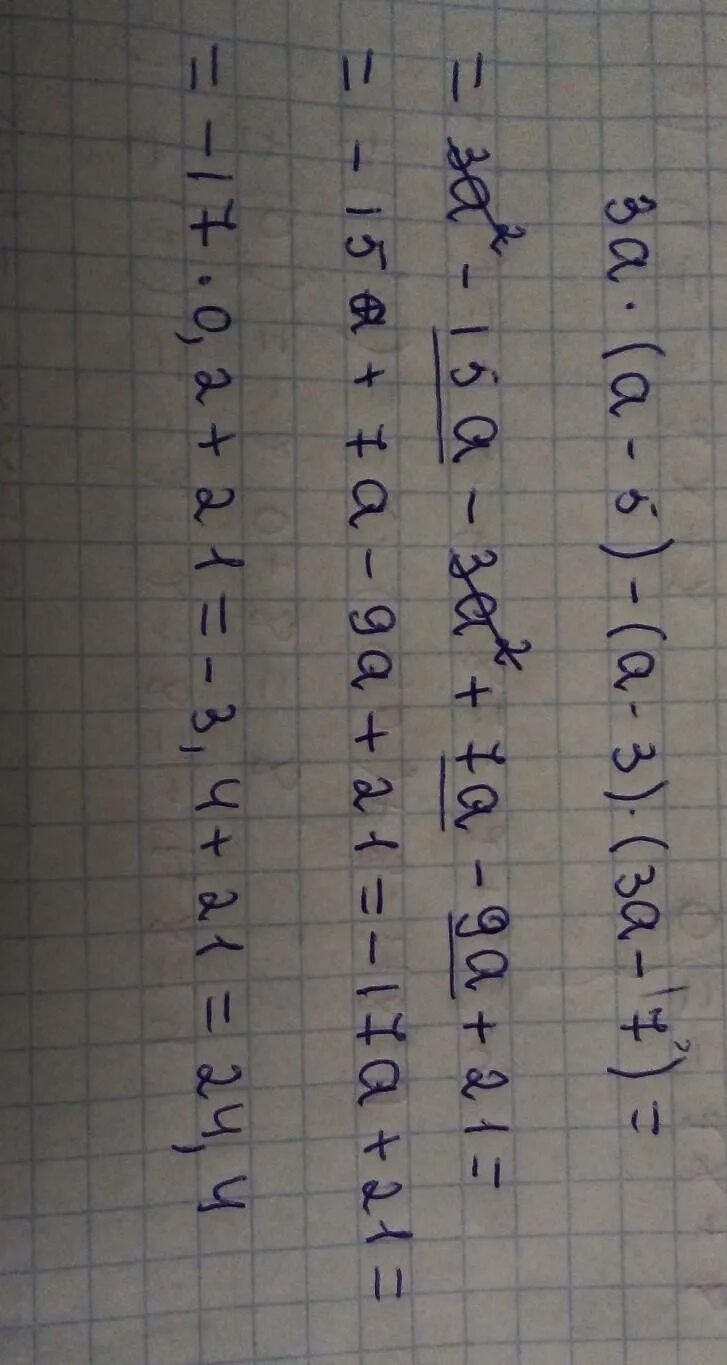 3a·(a-5)-(a-3)·(3a-7)=
= 3a² - 15a - 3a² + 7a - 9a + 21 =
= -15a + 7a - 9a + 21 = -17a + 21 =
= -17·0,2 + 21 = -3,4 + 21 = 24,4